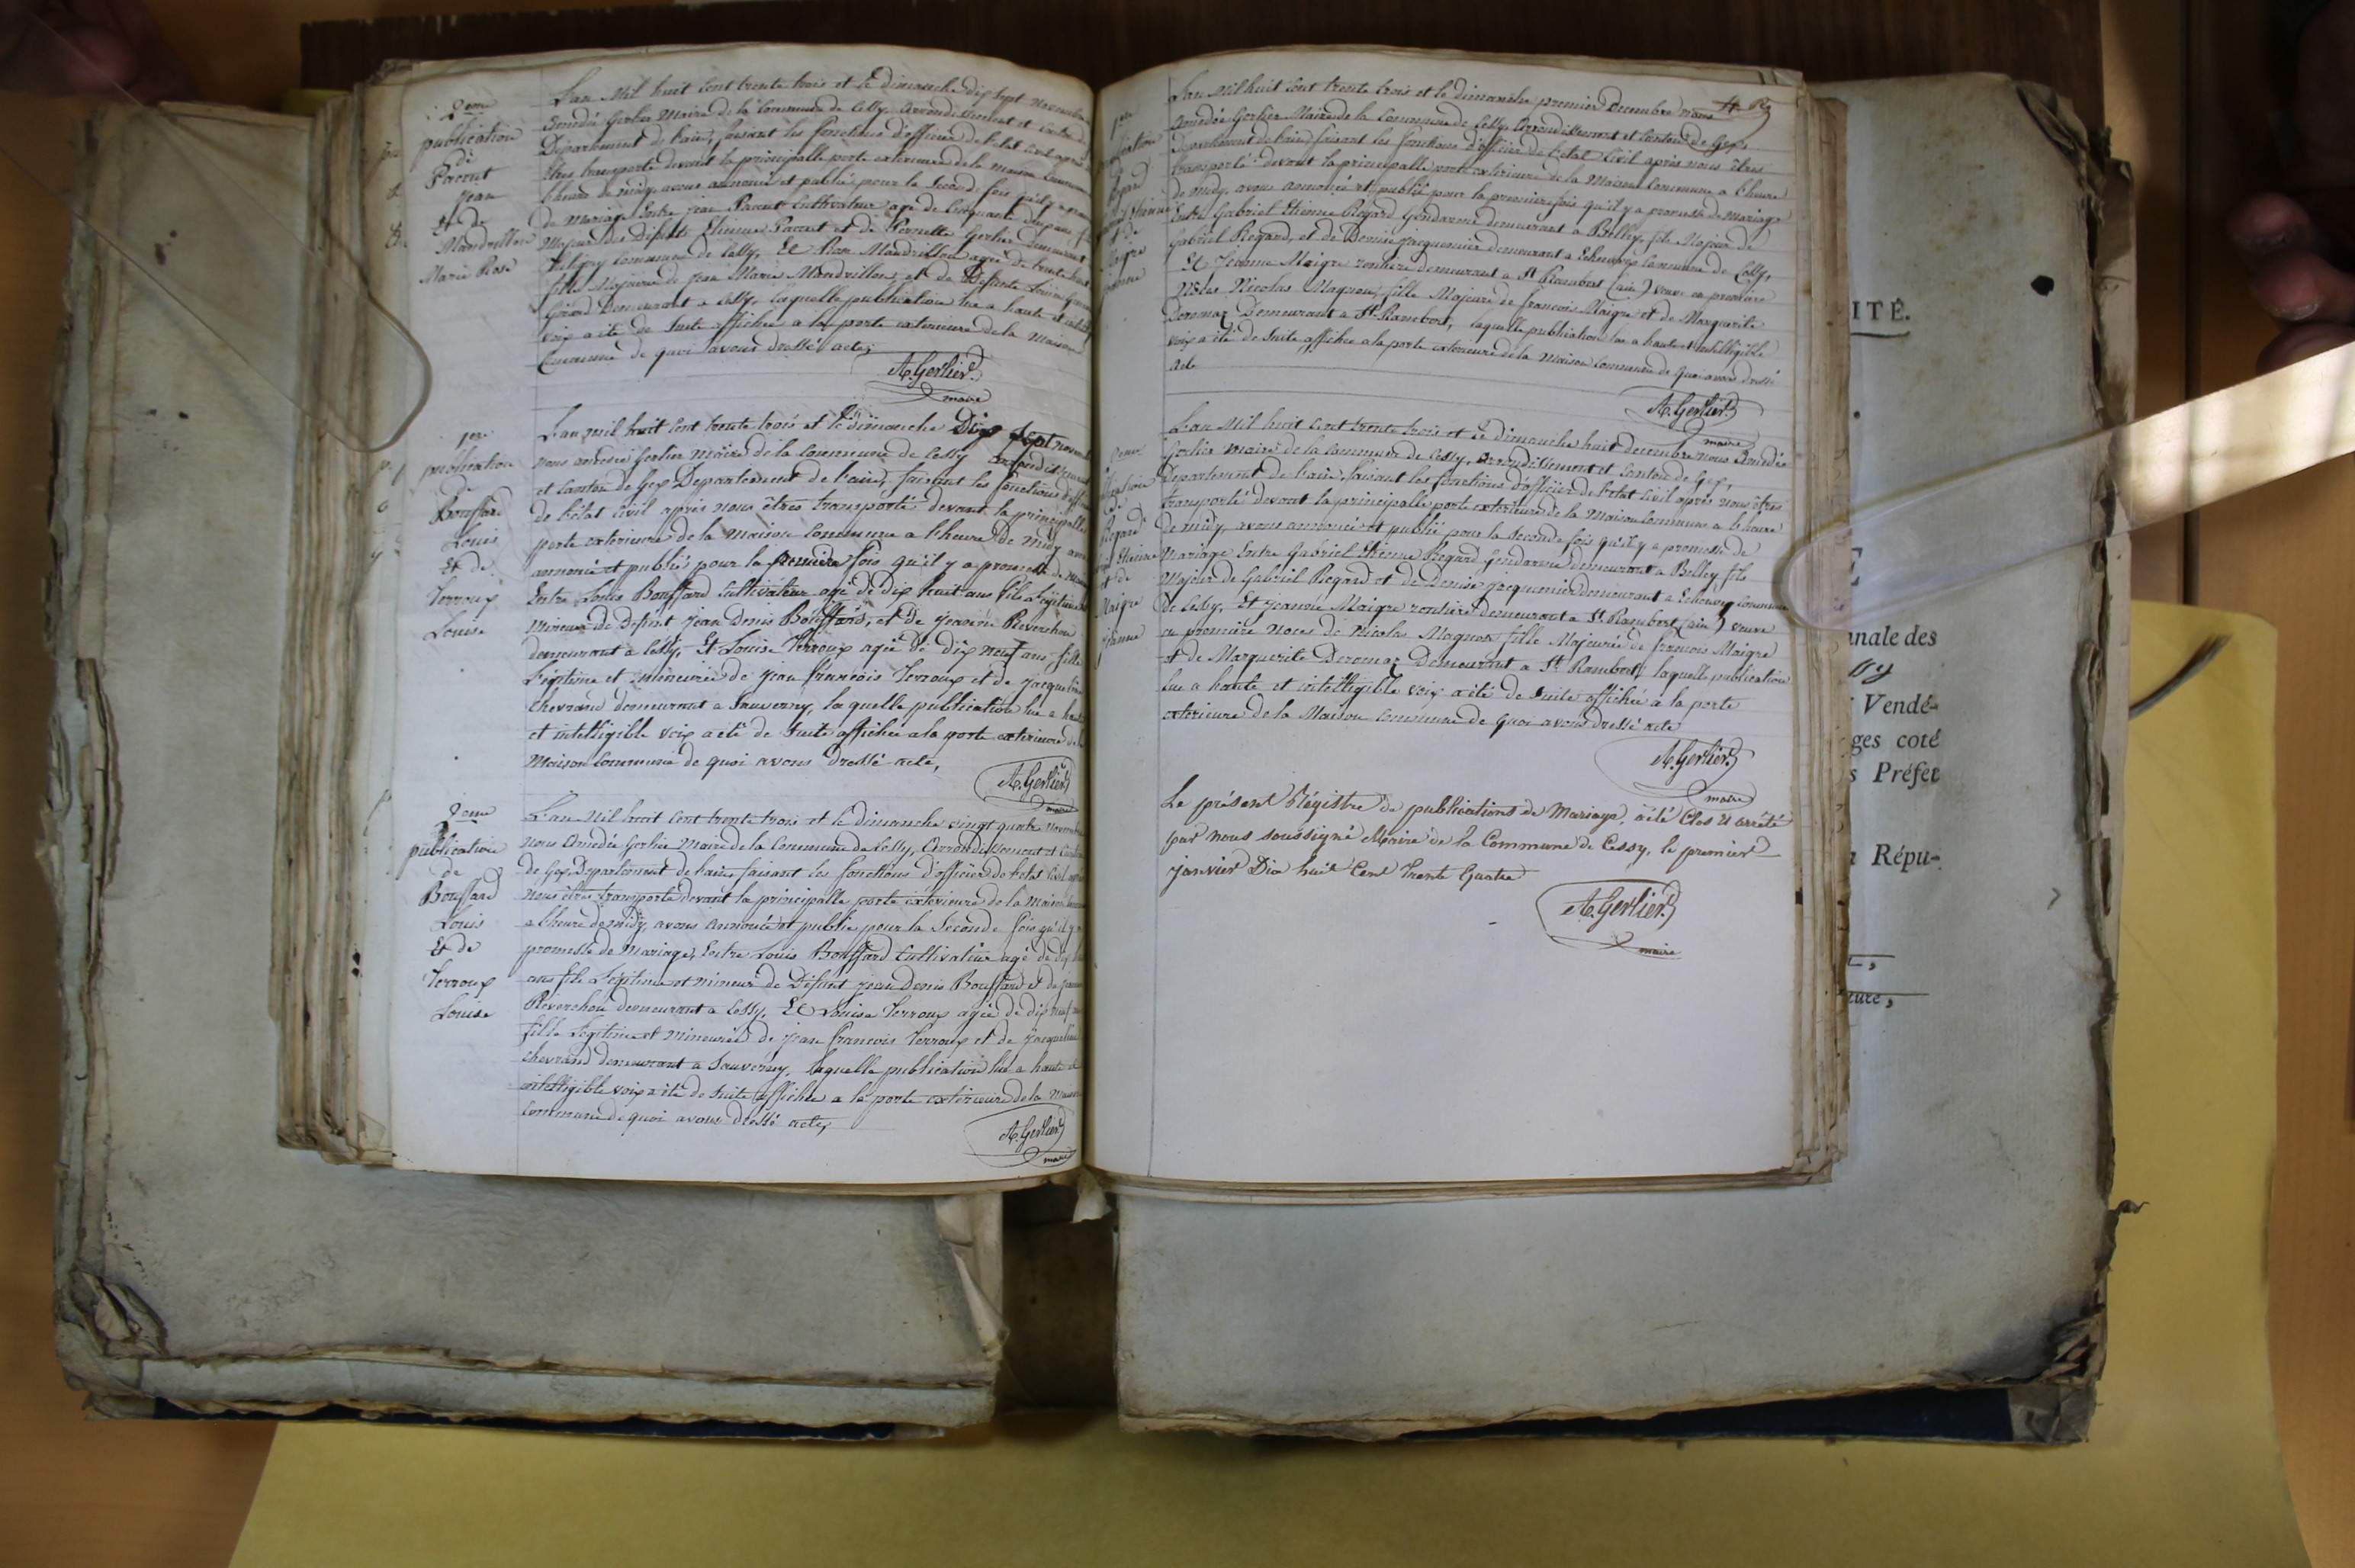 2eme
publication
de
Pacout
Jean
Et de
Mandrillon
Marie Rose
L'an Mil huit cent trente trois et le dimanche dix sept Novembre
Amedée Gerlier Maire de la Commune de Cessy, arrondissement et canton
Département de l'ain, faisant les fonctions d'officier de l'etat civil après
êtres transporté devant la principalle porte exterieure de la maison Commune
l'heure de midy, avons annoncé et publié pour la Seconde fois qu'il y a
de Mariage Entre jean Pacout Cultivateur agé de Cinquante
Majeur des Défunts Etienne Pacout et de Pernette Gerlier Demeurant
Commune de Cessy, Et Rose Mandrillon agée de trente
fille Majeure de Jean Marie Mandrillon, et de Défunte Louise
Girod Demeurant a Cessy, laquelle publication lue a haute et
voix a été de Suite affichée a la porte exterieure de la Maison
Commune de quoi avons dressé acte;
A. Gerlier
maire
1ere
publication
de
Bouffard
Louis
Et de
Verroux
Louise
L'an mil huit cent trente trois et le dimanche Dix Sept novem
nous amedée Gerlier maire de la Commune de Cessy arrondissement
et canton de Gex Departement de l'ain, faisant les fonctions d'off
de l'état Civil après nous êtres transporté devant la principalle
porte exterieure de la Maison Commune a l'heure de midy
annoncé et publiés pour la première fois qu'il y a promesse de
Entre Louis Bouffard Cultivateur agé de Dix huit ans fils Légitime
Mineur de Defunt jean Denis Bouffard, et de jeanne Reverchon
demeurant a Cessy, Et Louise Verroux agée de dix neuf ans fille
Légitime et mineurée de jean francois Verroux et de jacqueline
Chevrand demeurant a Sauverny, laquelle publication lue a haute
et intelligible voix a été de Suite affichée a la porte exterieure de la
Maison Commune de quoi avons dressé acte,
A. Gerlier
maire
2eme
publication
de
Bouffard
Louis
Et de
Verroux
Louise
L'an Mil huit cent trente trois et le dimanche vingt quatre Novembre
nous Amedée Gerlier Maire de la Commune de Cessy, Arrondissement et
de Gex, Departement de l'ain, faisant les fonctions d'officier de l'etat Civil
nous êtres transporté devant la principalle porte exterieure de la Maison
a l'heure de midy, avons annoncé et publié pour la Seconde fois qu'il y
promesse de Mariage, Entre Louis Bouffard Cultivateur agé de dix
ans fils Légitime et mineur de Défunt jean Denis Bouffard et de
Reverchon demeurant a Cessy, Et Louise Verroux agée de dix neuf
fille Légitime et Mineurée de jean francois Verroux et de jacqueline
Chevrand demeurant a Sauverny, laquelle publication lue a haute et
intelligible voix a été de Suite affichée a la porte exterieure de la Maison
Commune de quoi avons dressé acte,
A. Gerlier
maire
1ere
Regard
et de
Maigre
jeanne
L'an Mil huit cent trente trois et le dimanche premier Decembre nous
Amedée Gerlier Maire de la Commune de Cessy, Arrondissement et canton de Gex,
Departement de l'ain, faisant les fonctions d'officier de l'etat Civil après nous êtres
transporté devant la principalle porte exterieure de la Maison Commune a l'heure
de midy, avons annoncé et publié pour la première fois qu'il y a promesse de Mariage
Entre Gabriel Etienne Regard Gendarme demeurant a Belley, fils Majeur de
Gabriel Regard, et de Denise jacquemier demeurant a Echenvex Commune de Cessy,
Et Jeanne Maigre rentière demeurant a St Rambert (ain) veuve en première
Noces Nicolas Magnon, fille Majeure de francois Maigre et de Marguerite
Deromaz Demeurant a St Rambert, laquelle publication lue a haute et intelligible
voix a été de Suite affichée a la porte exterieure de la Maison Commune de quoi avons dressé
acte
A. Gerlier
maire
2eme
de
Regard
Etienne
et de
Maigre
jeanne
L'an Mil huit cent trente trois et le dimanche huit decembre nous Amedée
Gerlier Maire de la Commune de Cessy, arrondissement et canton de Gex,
Departement de l'ain, faisant les fonctions d'officier de l'etat Civil après nous êtres
transporté devant la principalle porte exterieure de la Maison Commune a l'heure
de midy, avons annoncé et publié pour la Seconde fois qu'il y a promesse de
Mariage Entre Gabriel Etienne Regard Gendarme demeurant a Belley fils
Majeur de Gabriel Regard et de Denise jacquemier demeurant a Echenvex Commune
de Cessy, Et jeanne Maigre rentière demeurant a St Rambert (ain) veuve
en première noces de Nicolas Magnon fille Majeurée de francois Maigre
et de Marguerite Deromaz Demeurant a St Rambert, laquelle publication
lue a haute et intelligible voix a été de Suite affichée a la porte
exterieure de la Maison Commune de quoi avons dressé acte
A. Gerlier
maire
Le présent Régistre de publications de Mariage, a été Clos et arrêté
par nous soussigné Maire de la Commune de Cessy, le premier
janvier Dix huit Cent Trente Quatre
A. Gerlier
maire
ITÉ.
nale des
Vendé-
ges coté
s Préfet
Répu-